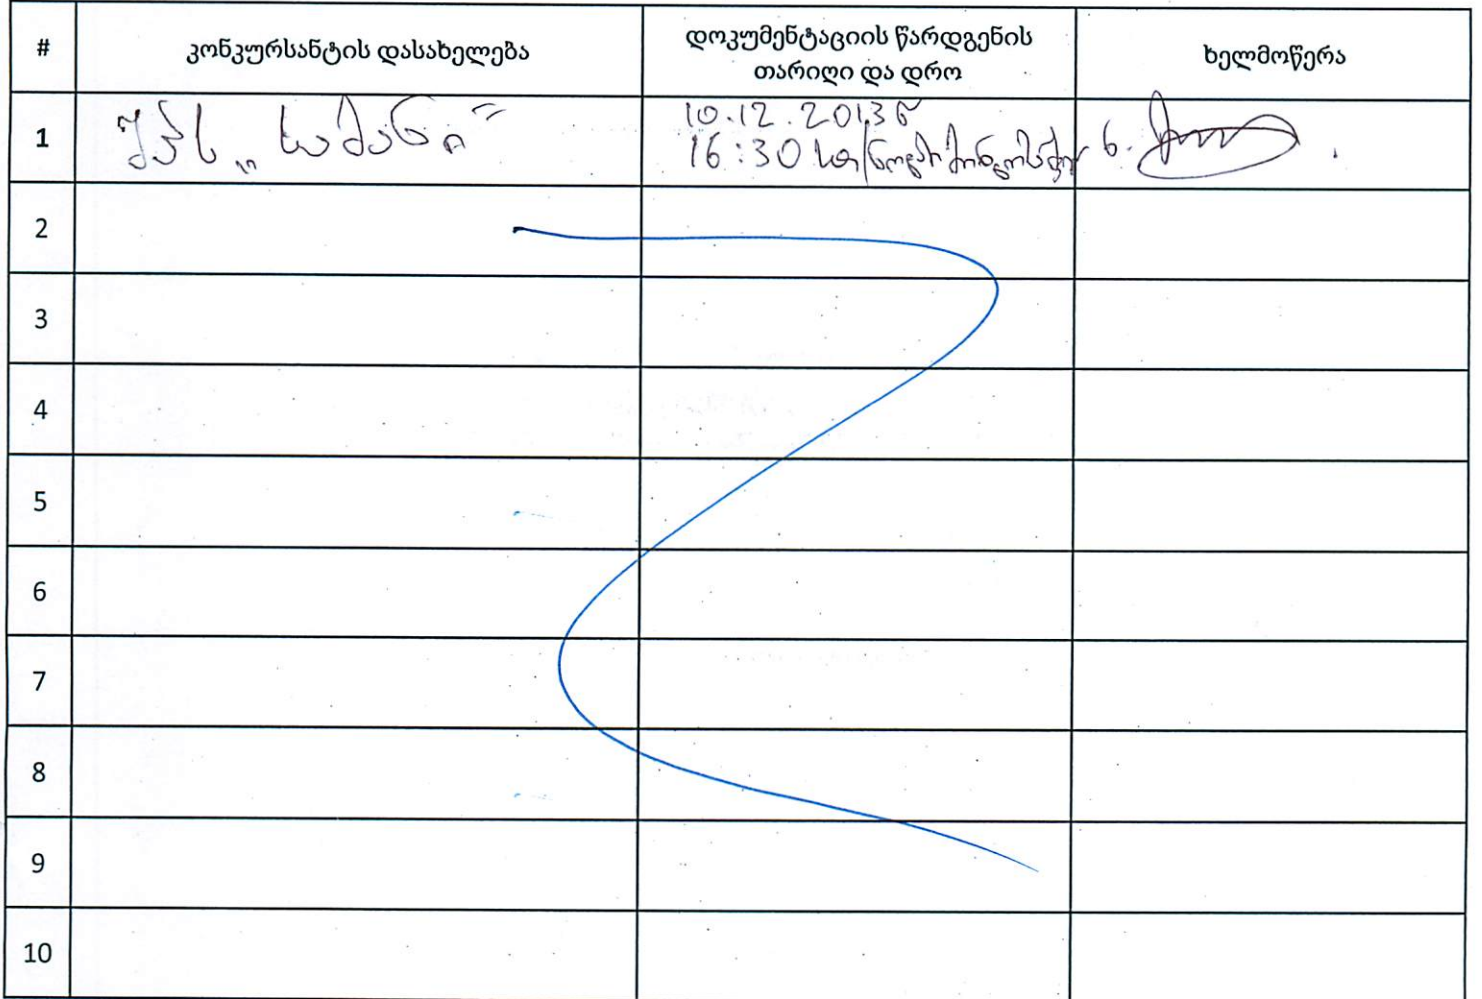 #
კონკურსანტის დასახელება
დოკუმენტაციის წარდგენის
თარიღი და დრო
ხელმოწერა
1
შპს „
10.12.2013წ
16:30 სთ
2
3
4
5
6
7
8
9
10